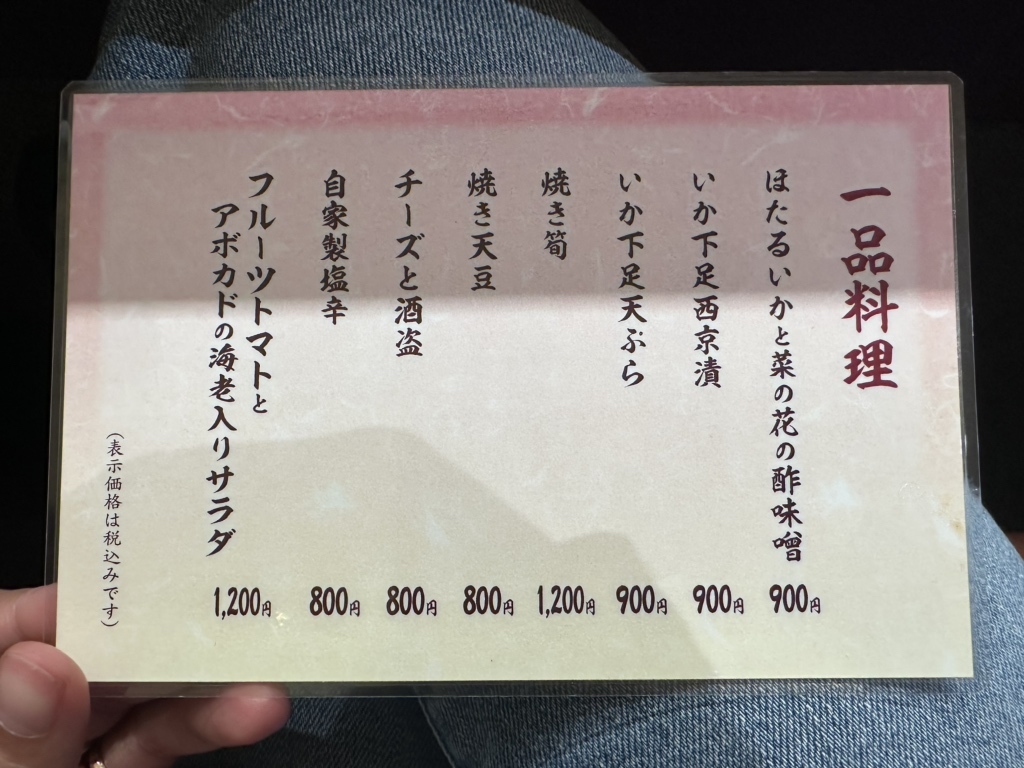 一品料理
ほたるいかと菜の花の酢味噌 900円
いか下足西京漬 900円
いか下足天ぷら 900円
焼き筍 1,200円
焼き天豆 800円
チーズと酒盗 800円
自家製塩辛 800円
フルーツトマトと
アボカドの海老入りサラダ 1,200円
(表示価格は税込みです)